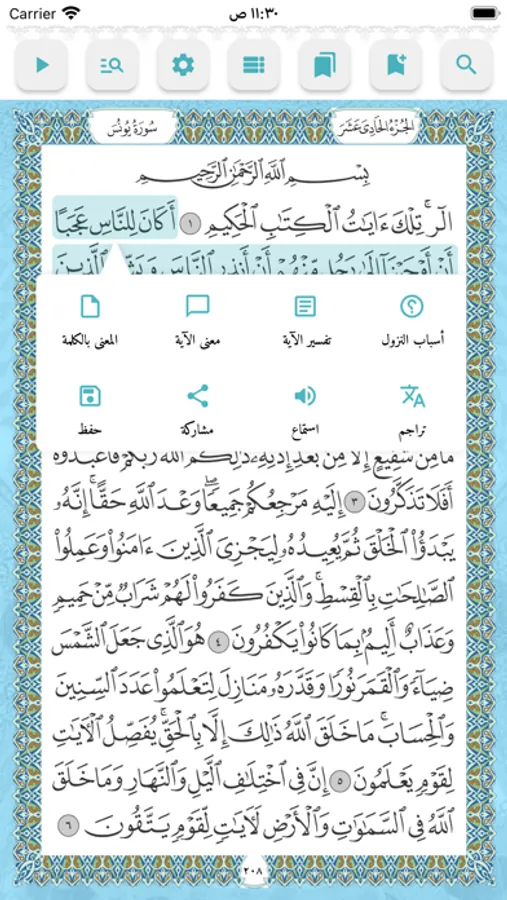 Carrier ١١:٣٠ ص
سُورَةُ يُونُسَ
الجُزْءُ الحَادِي عَشَرَ
بِسْمِ اللَّهِ الرَّحْمَٰنِ الرَّحِيمِ
الٓرۚ تِلْكَ ءَايَٰتُ ٱلْكِتَٰبِ ٱلْحَكِيمِ ١ أَكَانَ لِلنَّاسِ عَجَبًا
أَنْ أَوْحَيْنَآ إِلَىٰ رَجُلٍ مِّنْهُمْ أَنْ أَنذِرِ ٱلنَّاسَ وَبَشِّرِ ٱلَّذِينَ
أسباب النزول
تفسير الآية
معنى الآية
المعنى بالكلمة
تراجم
استماع
مشاركة
حفظ
مَا مِن شَفِيعٍ إِلَّا مِنۢ بَعْدِ إِذْنِهِۦۚ ذَٰلِكُمُ ٱللَّهُ رَبُّكُمْ فَٱعْبُدُوهُۚ
أَفَلَا تَذَكَّرُونَ ٣ إِلَيْهِ مَرْجِعُكُمْ جَمِيعًاۖ وَعْدَ ٱللَّهِ حَقًّاۚ إِنَّهُۥ
يَبْدَؤُا۟ ٱلْخَلْقَ ثُمَّ يُعِيدُهُۥ لِيَجْزِىَ ٱلَّذِينَ ءَامَنُوا۟ وَعَمِلُوا۟
ٱلصَّٰلِحَٰتِ بِٱلْقِسْطِۚ وَٱلَّذِينَ كَفَرُوا۟ لَهُمْ شَرَابٌ مِّنْ حَمِيمٍ
وَعَذَابٌ أَلِيمٌۢ بِمَا كَانُوا۟ يَكْفُرُونَ ٤ هُوَ ٱلَّذِى جَعَلَ ٱلشَّمْسَ
ضِيَآءً وَٱلْقَمَرَ نُورًا وَقَدَّرَهُۥ مَنَازِلَ لِتَعْلَمُوا۟ عَدَدَ ٱلسِّنِينَ
وَٱلْحِسَابَۚ مَا خَلَقَ ٱللَّهُ ذَٰلِكَ إِلَّا بِٱلْحَقِّۚ يُفَصِّلُ ٱلْءَايَٰتِ
لِقَوْمٍ يَعْلَمُونَ ٥ إِنَّ فِى ٱخْتِلَٰفِ ٱلَّيْلِ وَٱلنَّهَارِ وَمَا خَلَقَ
ٱللَّهُ فِى ٱلسَّمَٰوَٰتِ وَٱلْأَرْضِ لَءَايَٰتٍ لِّقَوْمٍ يَتَّقُونَ ٦
٢٠٨